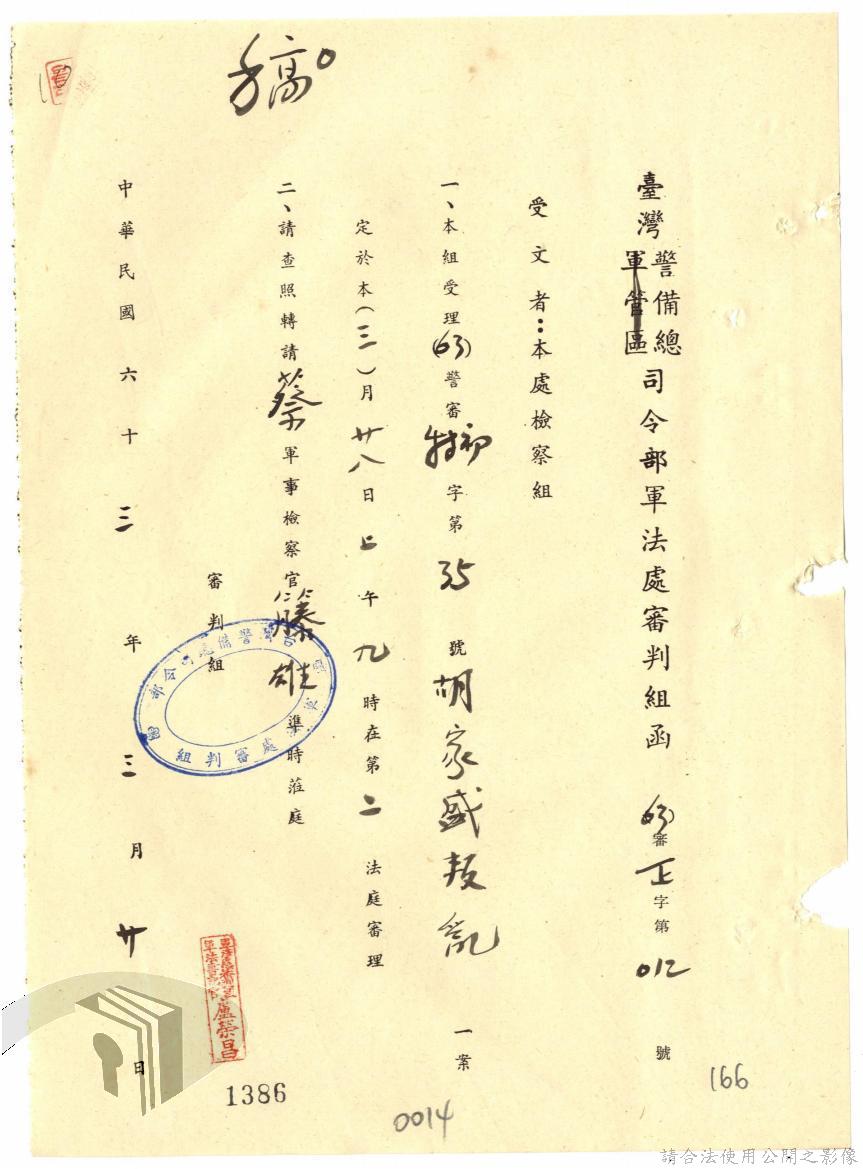 稿
臺灣警備總軍管區司令部軍法處審判組函
(63)審正字第012號
受文者：本處檢察組
一、本組受理(63)警審特初字第35號胡家盛叛亂一案
定於本(三)月廿八日上午九時在第二法庭審理
二、請查照轉請蔡軍事檢察官籐雄準時蒞庭
審判組
處審判組
中華民國六十三年三月廿日
盧榮昌
1386
0014
166
請合法使用公開之影像